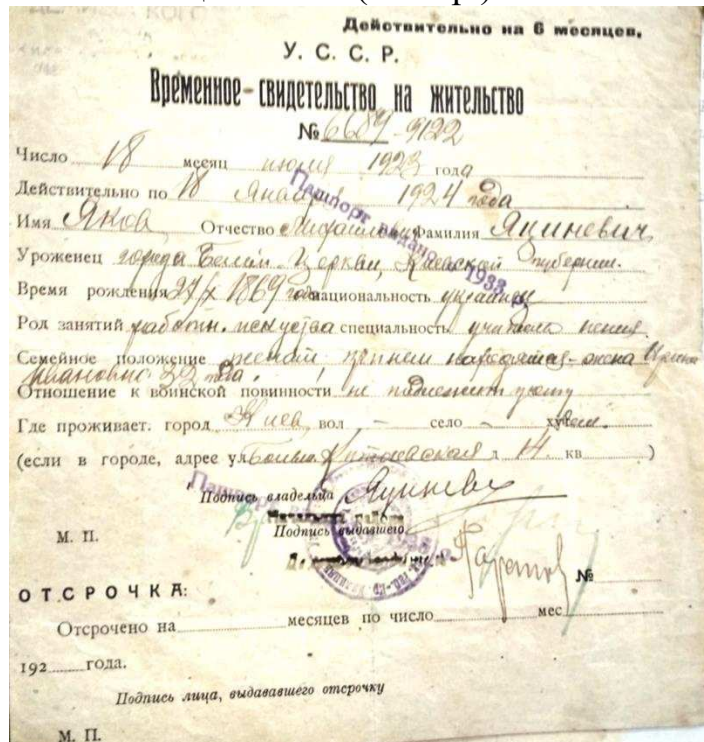 Действительно на 6 месяцев.
У. С. С. Р.
Временное-свидетельство на жительство
№ 6689-9122
Число 18 месяц июля 1923 года
Действительно по 18 Января 1924 года
Имя Яков Отчество Михайлович Фамилия Яциневич
Уроженец города Белой-Церкви, Киевской губернии.
Время рождения 27/X 1869 года национальность украинец
Род занятий работн. искусства специальность учитель пения
Семейное положение женат: при нем жена Ирина
Ивановна 32 года.
Отношение к воинской повинности не подлежит
Где проживает. город Киев вол — село —
(если в городе, адрес ул Больш. Житомирская д 14. кв )
Паспорт видано 1933 р.
Подпись владельца Яциневич
Начальник района
М. П. Подпись выдавшего.
№
ОТСРОЧКА:
Отсрочено на месяцев по число мес
192 года.
Подпись лица, выдававшего отсрочку
М. П.